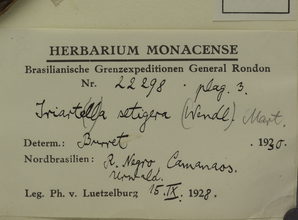 HERBARIUM MONACENSE
Brasilianische Grenzexpeditionen General Rondon
Nr. 22298 · plag. 3.
Iriart(ell)a setigera (Wendl.) Mart.
Determ.: Burret · 1930.
Nordbrasilien: R. Negro, Camanaos.
Urwald.
Leg. Ph. v. Luetzelburg 15.IX. 1928.